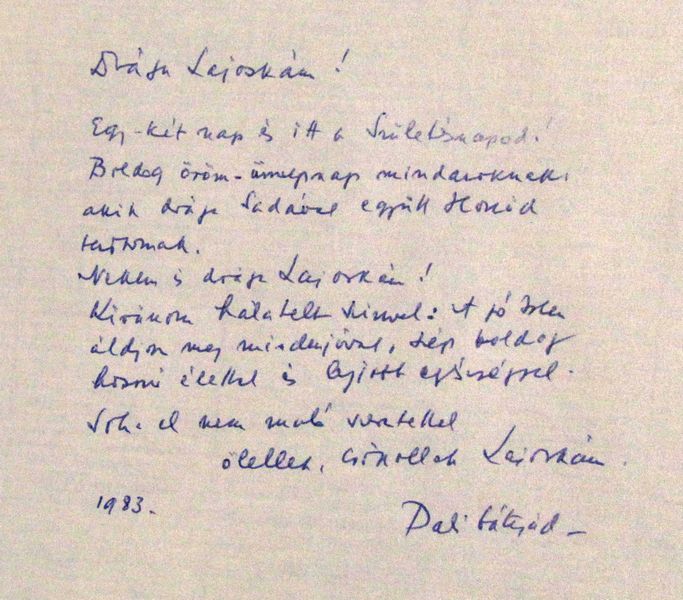 Drága Lajoskám!
Egy-két nap és itt a Születésnapod!
Boldog öröm-ünnepnap mindazoknak,
akik drága együtt Hozzád
tartoznak.
Nekem is drága Lajoskám!
Kívánom hálatelt szívvel: A jó Isten
áldjon meg minden jóval, szép boldog
hosszú élettel és legjobb egészséggel.
Soha el nem muló szeretettel
ölellek, csókollak Lajoskám.
1983.
Dali bátyád